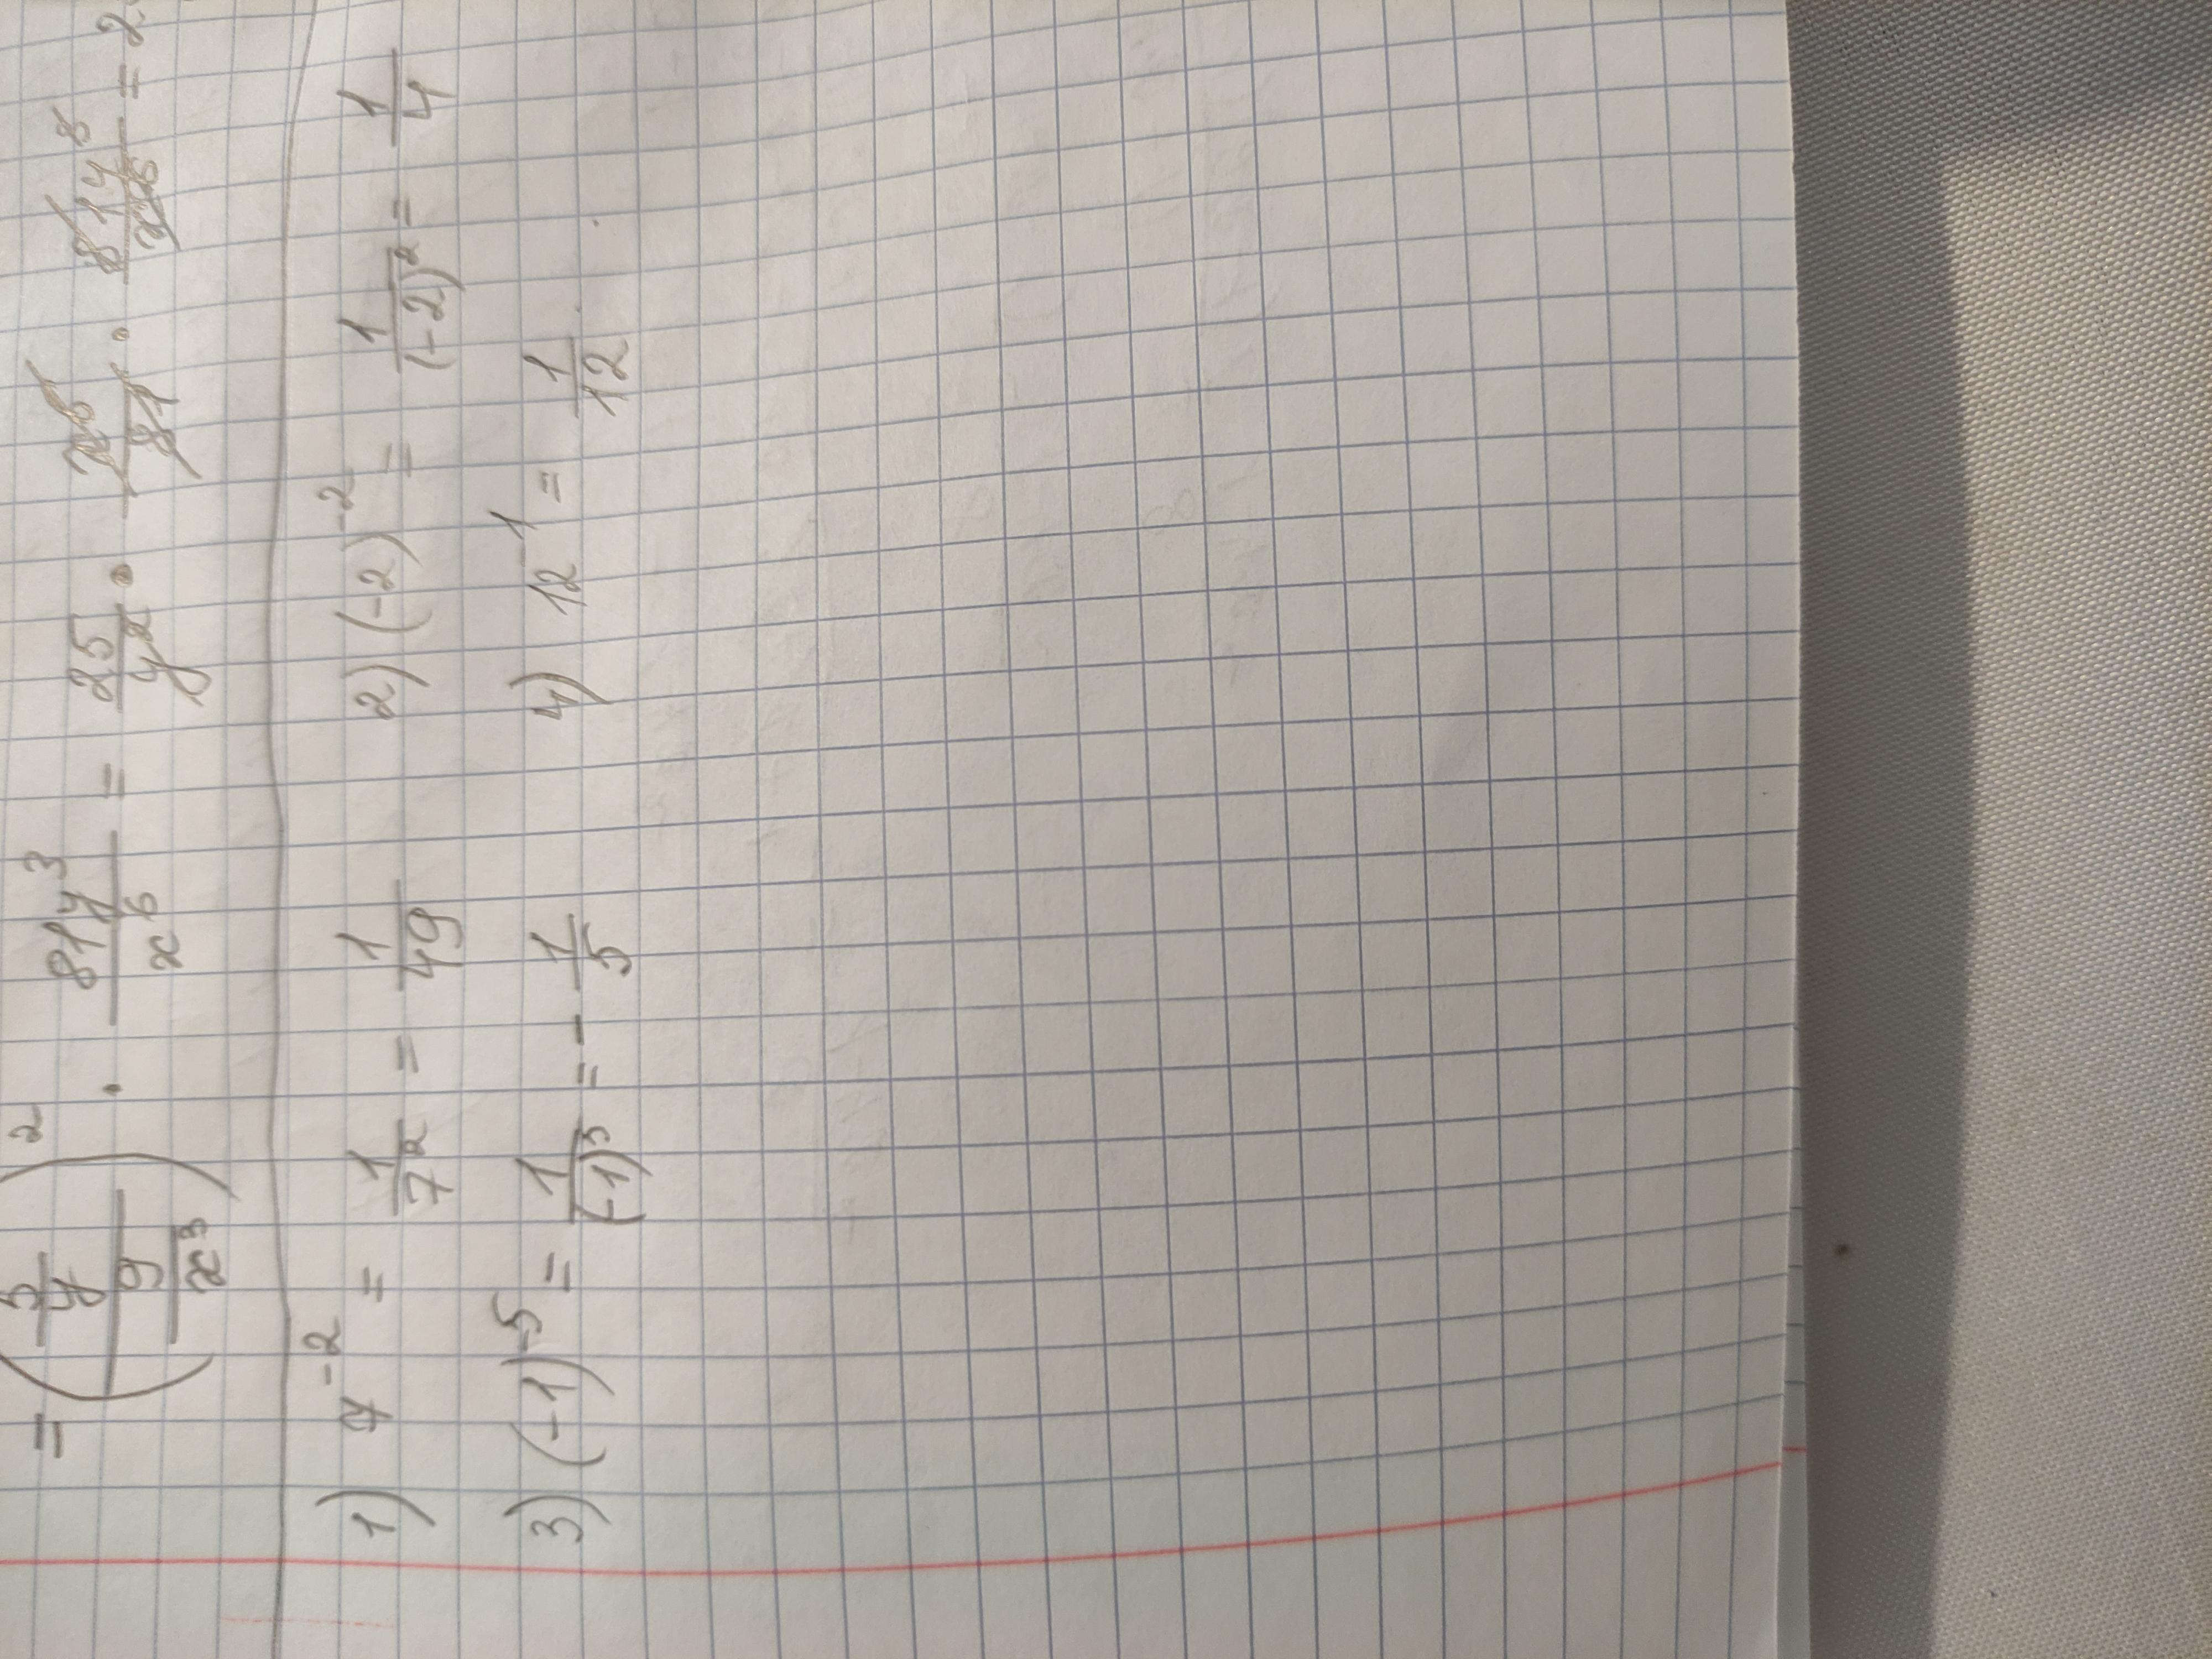 = ((5/y)/(9/x³))² · 81y³/x⁶ = 25/y² · x⁶/81 · 81y³/x⁶ = 2
1) 7⁻² = 1/7² = 1/49 2) (-2)⁻² = 1/(-2)² = 1/4
3) (-1)⁻⁵ = 1/(-1)⁵ = -1/5 4) 12⁻¹ = 1/12